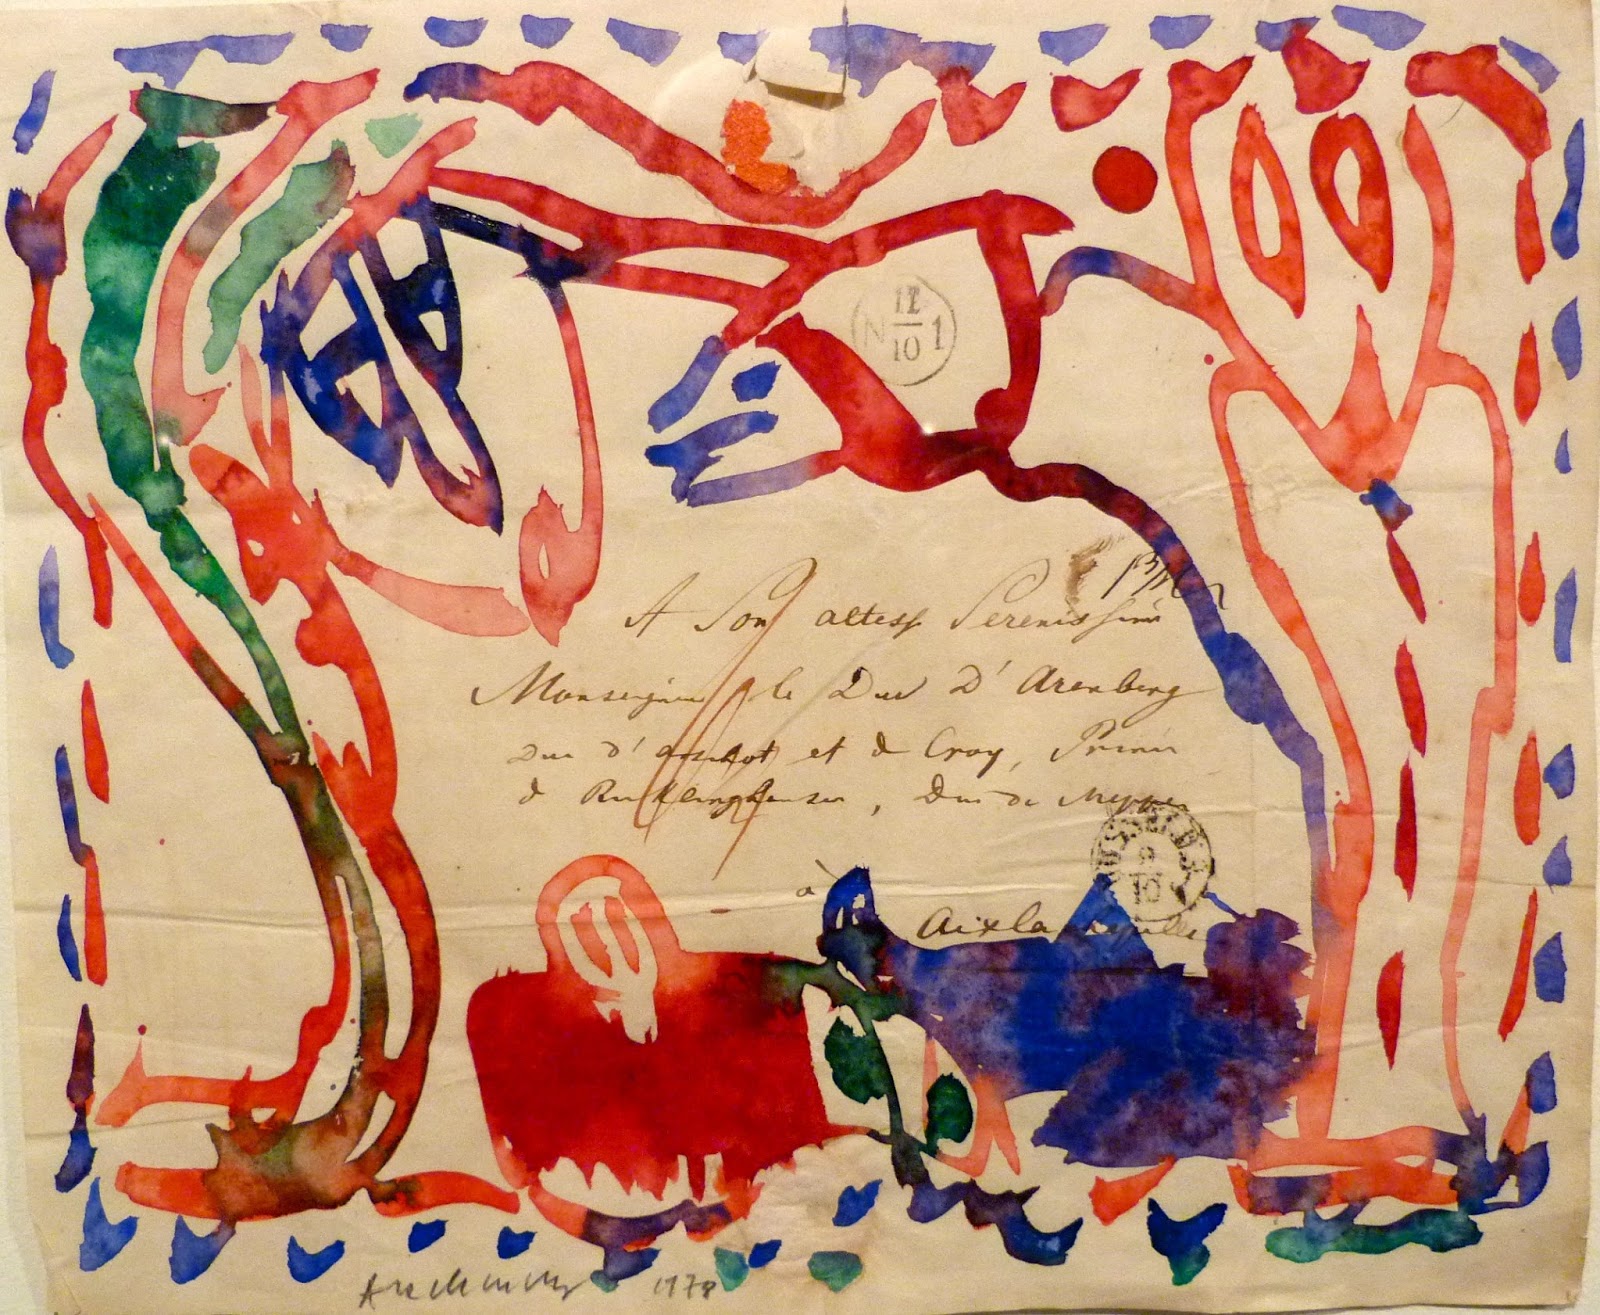 12
N 10 1
A Son altesse Serenissime
Monseigneur le Duc D'Arenberg
Duc d'arschot et de Croy, Prince
de Recklinghausen, Duc de Meppen
à
Aixlachapelle
9
10
1978